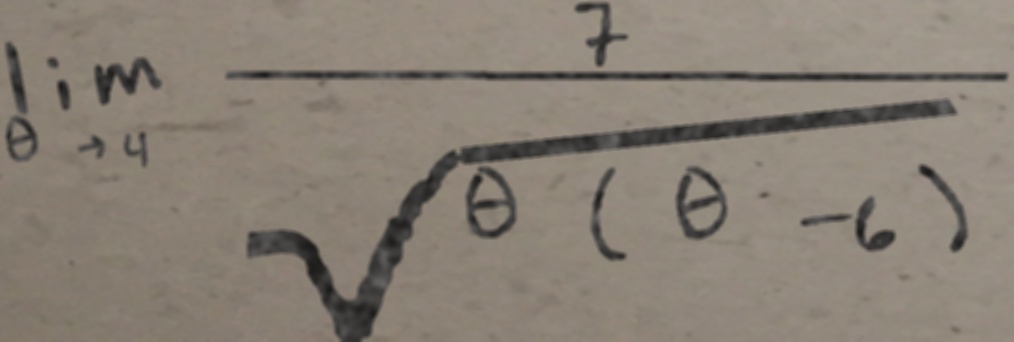 lim θ→4 7 / √θ(θ -6)